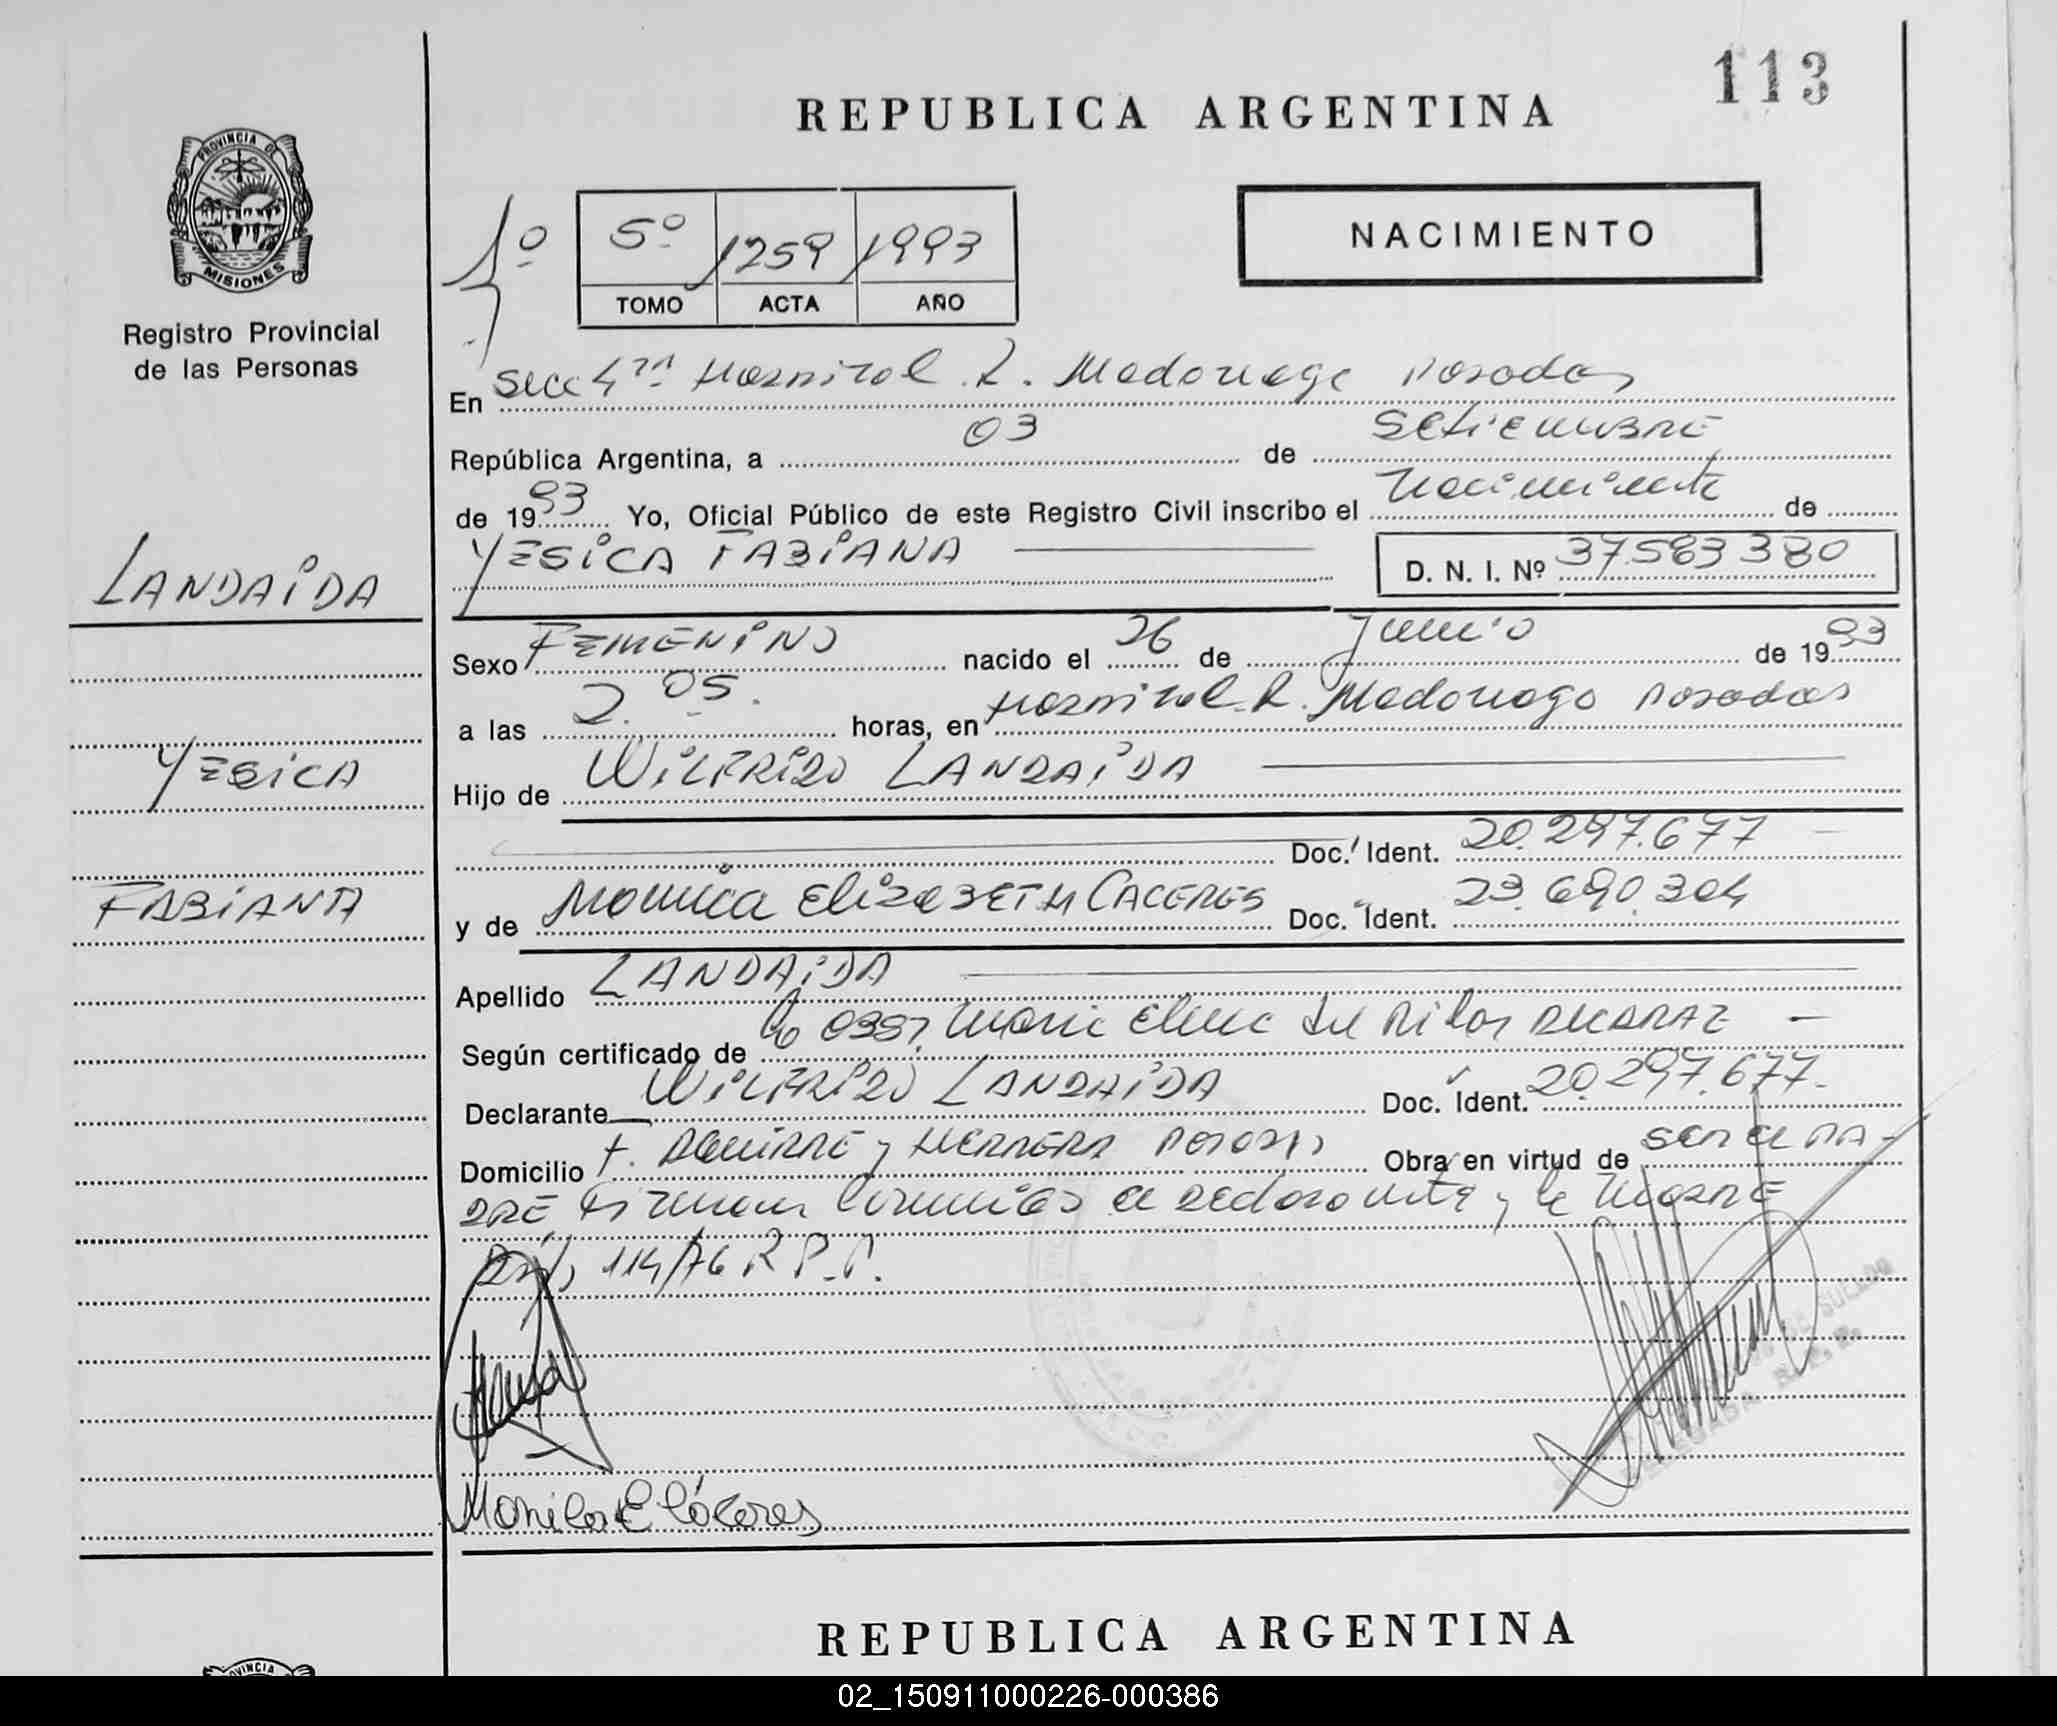 113
REPUBLICA ARGENTINA
PROVINCIA DE
MISIONES
Registro Provincial
de las Personas
1º
5º 1259 1993
TOMO ACTA AÑO
NACIMIENTO
En Secc 4ta Hospital R. Madariaga Posadas
República Argentina, a 03 de Setiembre
de 1993 Yo, Oficial Público de este Registro Civil inscribo el Nacimiento de
YESICA FABIANA
D. N. I. Nº 37.583.380
LANDAIDA
Sexo FEMENINO nacido el 26 de Junio de 1993
a las 2.05. horas, en Hospital R. Madariaga Posadas
YESICA
Hijo de WILFRIDO LANDAIDA
Doc. Ident. 20.297.677
FABIANA
y de Monica Elizabeth CACERES Doc. Ident. 23.690.304
Apellido LANDAIDA
Según certificado de 0387 Maria Elena del Pilar
Declarante WILFRIDO LANDAIDA Doc. Ident. 20.297.677.
Domicilio F. AGUIRRE y HERRERA Posadas Obra en virtud de ser el PA-
DRE Firman el declarante y la MADRE
114/76 R.P.P.
Monica E Cáceres
REPUBLICA ARGENTINA
02_150911000226-000386